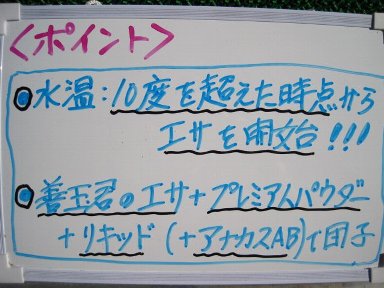 <ポイント>
●水温:10度を超えた時点から
エサを開始!!!
●善玉君のエサ+プレミアムパウダー
+リキッド(+アナカスAB)で団子